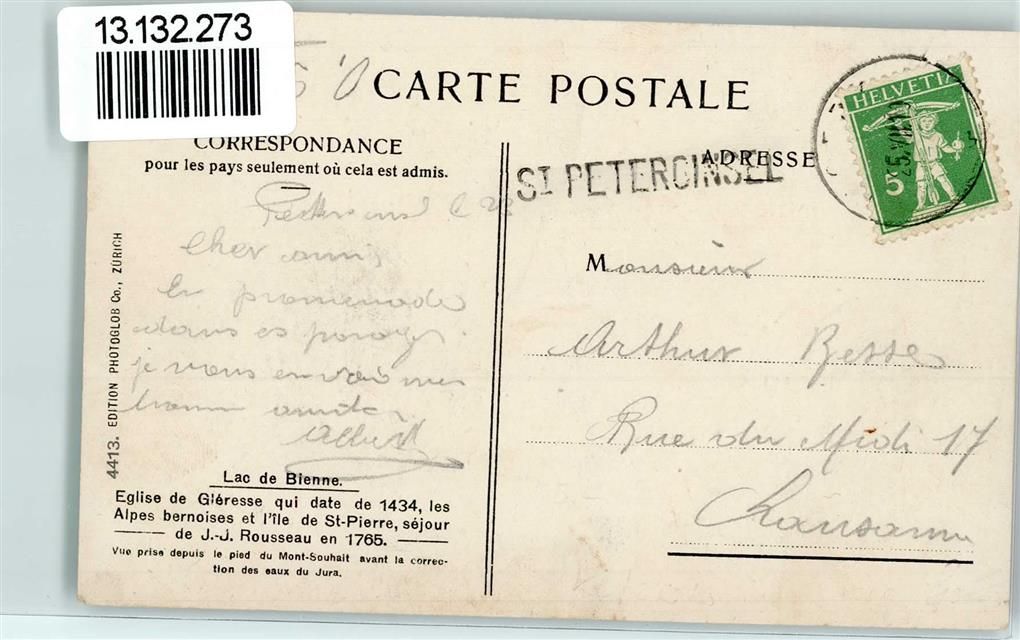 13.132.273
CARTE POSTALE
CORRESPONDANCE
pour les pays seulement où cela est admis.
ADRESSE
ST PETERSINSEL
HELVETIA
5
Cher ami
En promenade
dans ces parages
je vous envoie mes
bonnes amitiés
Albert
Monsieur
Arthur Besse
Rue du Midi 17
Lausanne
4413. EDITION PHOTOGLOB Co., ZÜRICH
Lac de Bienne.
Eglise de Gléresse qui date de 1434, les
Alpes bernoises et l'île de St-Pierre, séjour
de J.-J. Rousseau en 1765.
Vue prise depuis le pied du Mont-Souhait avant la correc-
tion des eaux du Jura.